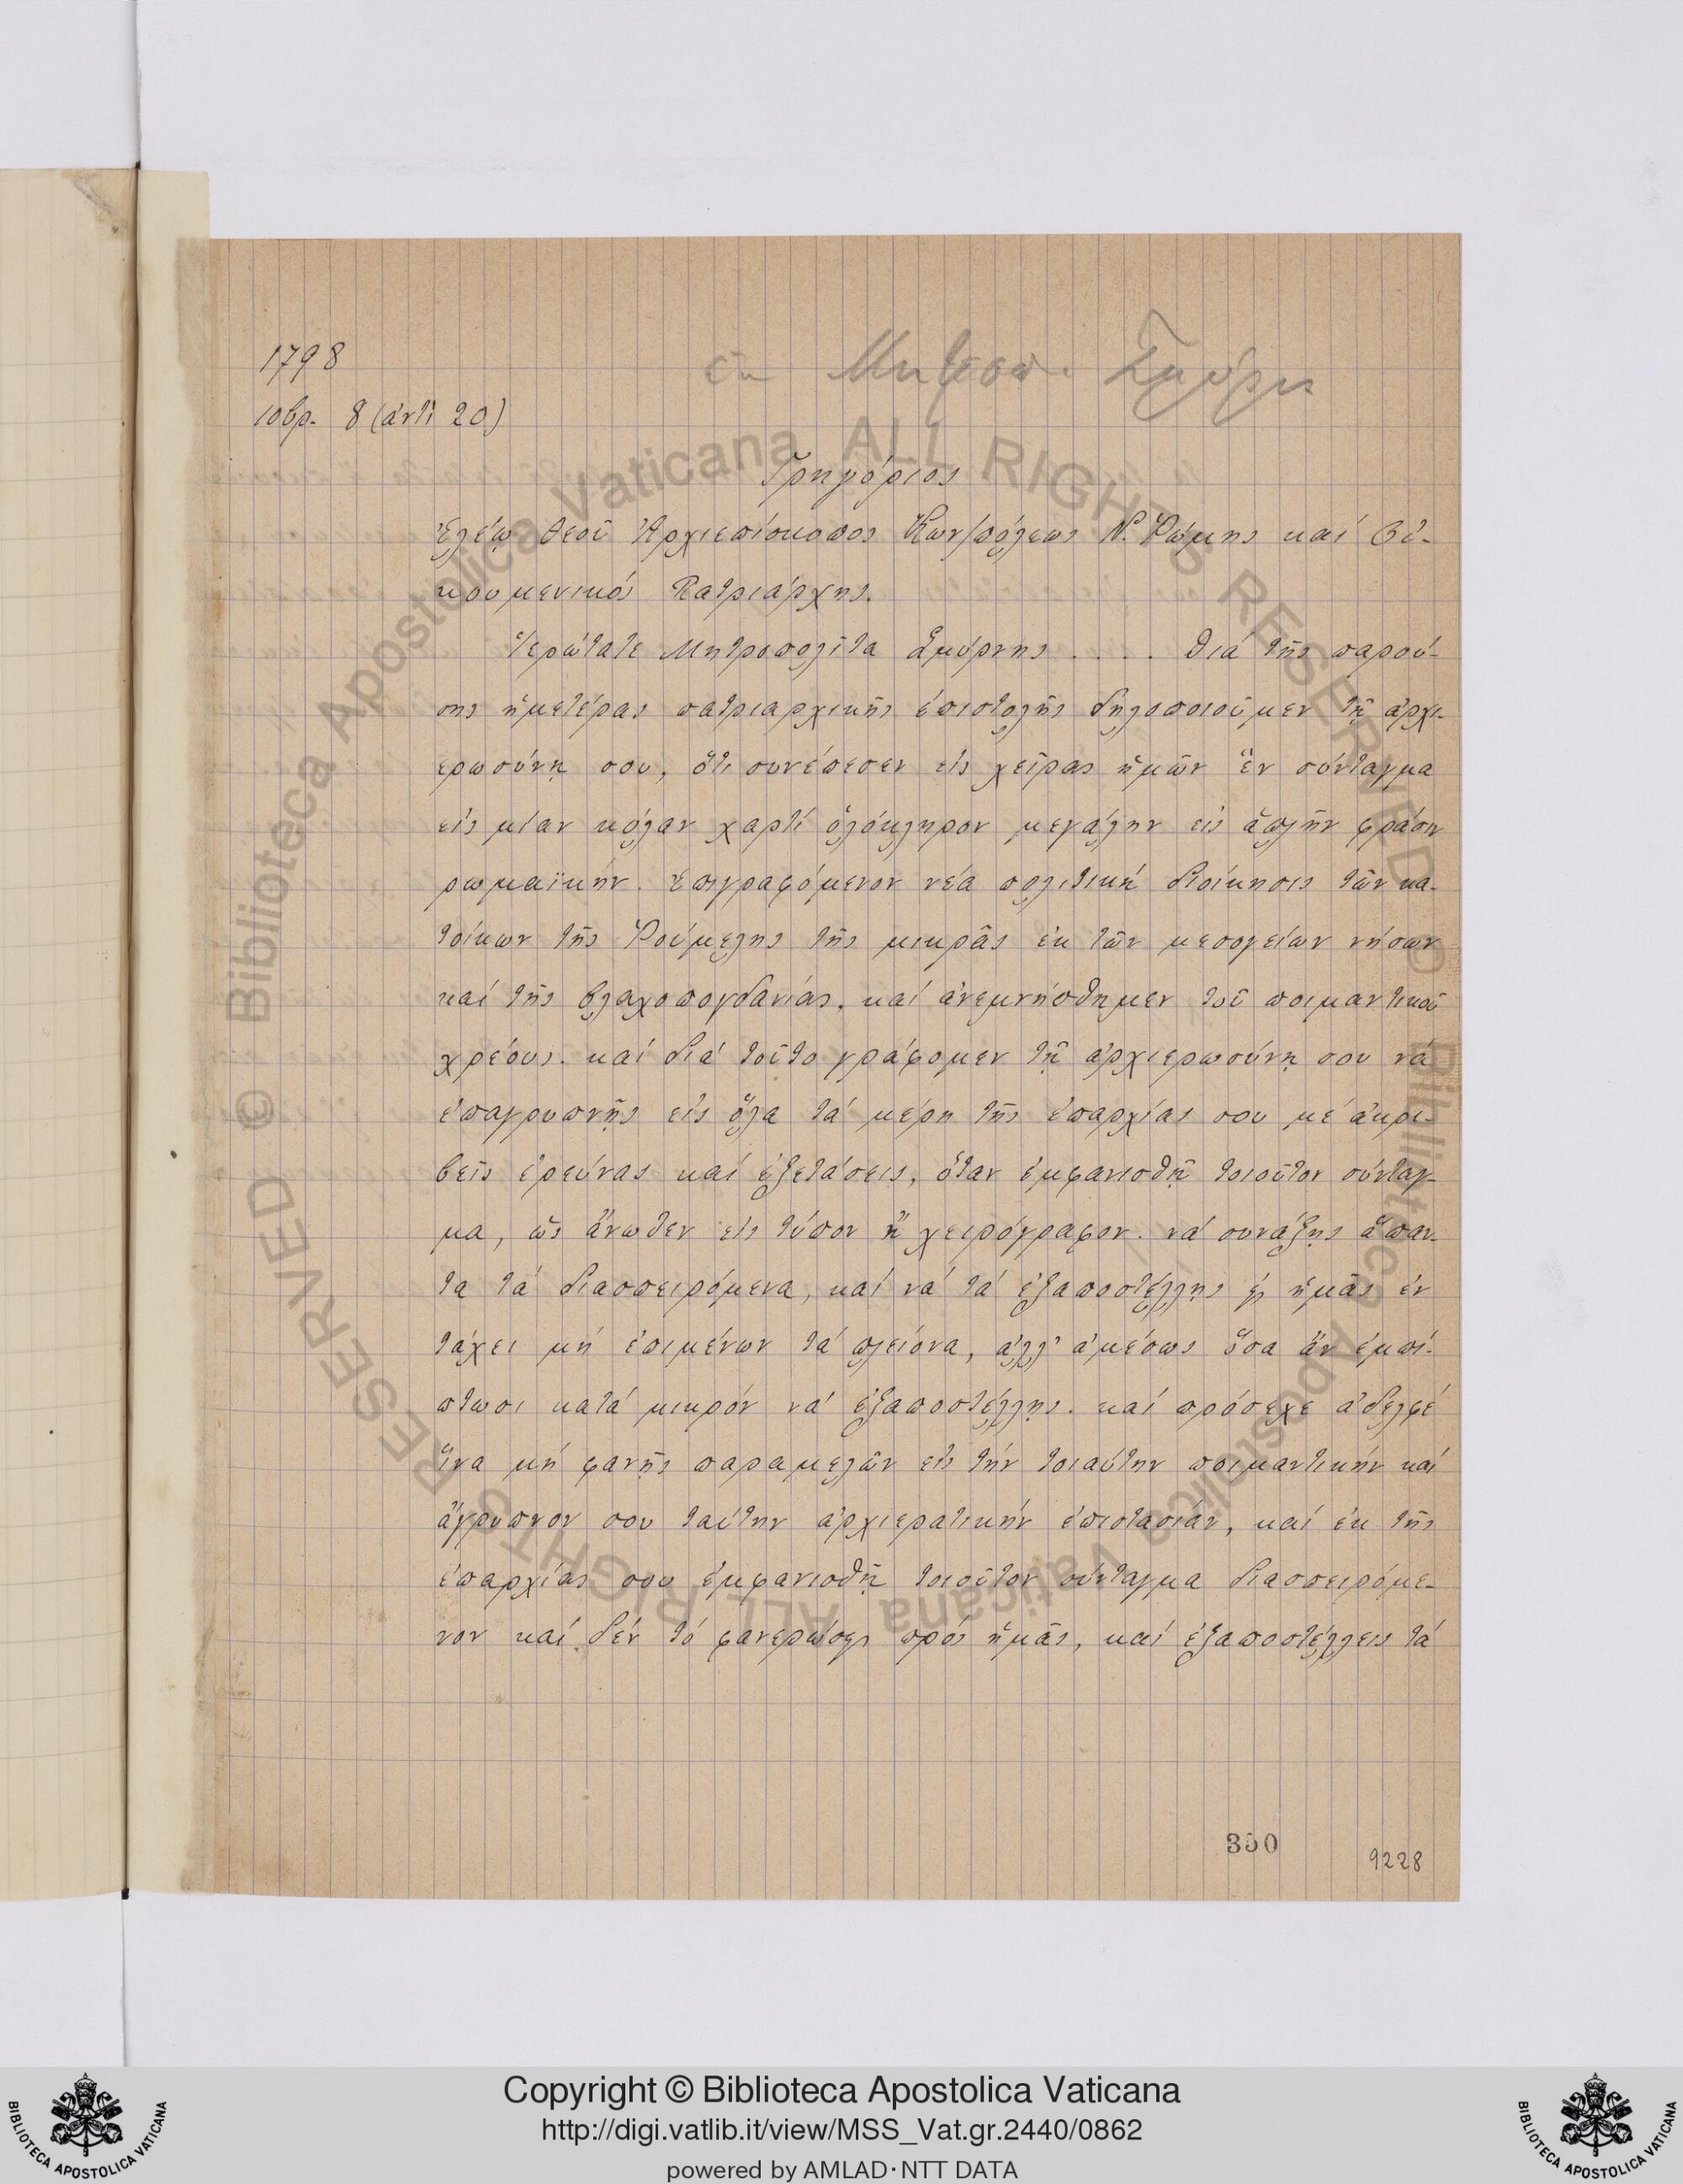 1798
10βρ. 8 (ἀντὶ 20)
Γρηγόριος
Ἐλέῳ θεοῦ Ἀρχιεπίσκοπος Κων/πόλεως Ν. Ῥώμης καί Οἰ-
κουμενικός Πατριάρχης.
Ἱερώτατε Μητροπολῖτα Σμύρνης .... διά τῆς παρού-
σης ἡμετέρας πατριαρχικῆς ἐπιστολῆς δηλοποιοῦμεν τῇ ἀρχι-
ερωσύνῃ σου, ὅτι συνέπεσεν εἰς χεῖρας ἡμῶν ἕν σύνταγμα
εἰς μίαν κόλαν χαρτί ὁλόκληρον μεγάλην εἰς ἁπλῆν φράσιν
ρωμαϊκήν. ἐπιγραφόμενον νέα πολιτική διοίκησις τῶν κα-
τοίκων τῆς Ῥούμελης τῆς μικρᾶς ἐκ τῶν μεσογείων νήσων
καί τῆς βλαχοπογδανίας. καί ἀνεμνήσθημεν τοῦ ποιμαντικοῦ
χρέους. καί διά τοῦτο γράφομεν τῇ ἀρχιερωσύνῃ σου νά
ἐπαγρυπνῇς εἰς ὅλα τά μέρη τῆς ἐπαρχίας σου μέ ἀκρι-
βεῖς ἐρεύνας καί ἐξετάσεις, ὅταν ἐμφανισθῇ τοιοῦτον σύνταγ-
μα, ὡς ἄνωθεν εἰς τύπον ἤ χειρόγραφον. νά συνάξῃς ἅπαν-
τα τά διασπειρόμενα, καί νά τά ἐξαποστέλλῃς εἰς ἡμᾶς ἐν
τάχει μή ἐπιμένων τά πλείονα, ἀλλ' ἀμέσως ὅσα ἄν ἐμπί-
πτωσι κατά μικρόν νά ἐξαποστέλλῃς. καί πρόσεχε ἀδελφέ
ἵνα μή φανῇς παραμελῶν εἰς τήν τοιαύτην ποιμαντικήν καί
ἄγρυπνον σου ταύτην ἀρχιερατικήν ἐπιστασίαν, καί ἐκ τῆς
ἐπαρχίας σου ἐμφανισθῇ τοιοῦτον σύνταγμα διασπειρόμε-
νον καί δέν τό φανερώσῃς πρός ἡμᾶς, καί ἐξαποστέλλεις τά
350
9228
© Biblioteca Apostolica Vaticana ALL RIGHTS RESERVED © Biblioteca Apostolica Vaticana ALL RIGHTS RESERVED
Copyright © Biblioteca Apostolica Vaticana
http://digi.vatlib.it/view/MSS_Vat.gr.2440/0862
powered by AMLAD·NTT DATA
BIBLIOTECA APOSTOLICA VATICANA
BIBLIOTECA APOSTOLICA VATICANA